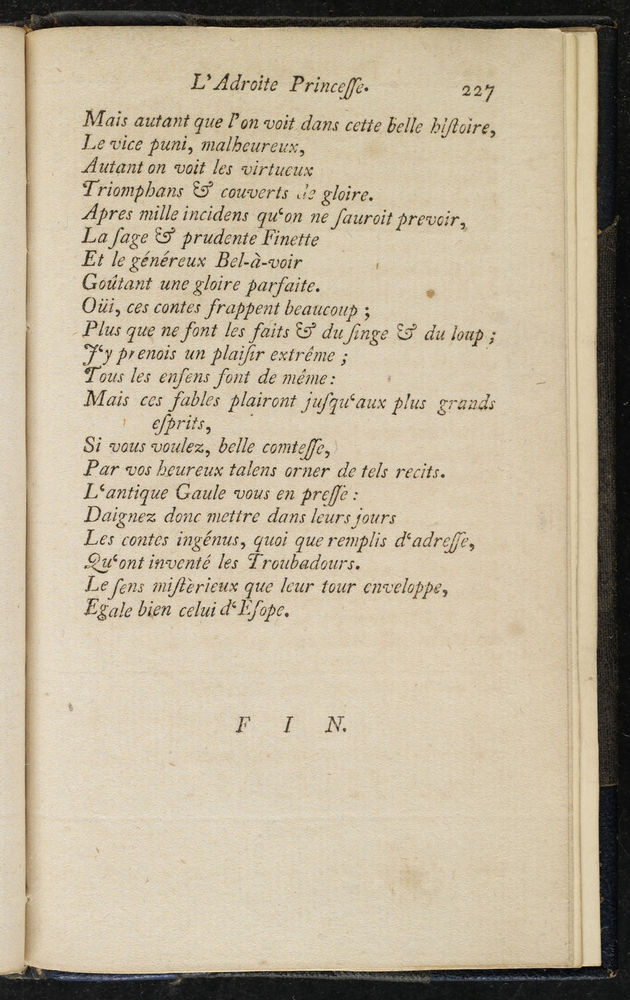 L'Adroite Princeſſe. 227
Mais autant que l'on voit dans cette belle hiſtoire,
Le vice puni, malheureux,
Autant on voit les virtueux
Triomphans & couverts de gloire.
Apres mille incidens qu‘on ne ſauroit prevoir,
La ſage & prudente Finette
Et le généreux Bel-à-voir
Goûtant une gloire parfaite.
Oüi, ces contes frappent beaucoup ;
Plus que ne font les faits & du ſinge & du loup ;
J‘y prenois un plaiſir extrême ;
Tous les enſens ſont de même :
Mais ces fables plairont juſqu‘aux plus grands
eſprits,
Si vous voulez, belle comteſſe,
Par vos heureux talens orner de tels recits.
L‘antique Gaule vous en preſſe :
Daignez donc mettre dans leurs jours
Les contes ingénus, quoi que remplis d‘adreſſe,
Qu‘ont inventé les Troubadours.
Le ſens miſtèrieux que leur tour enveloppe,
Egale bien celui d‘Eſope.
F I N.